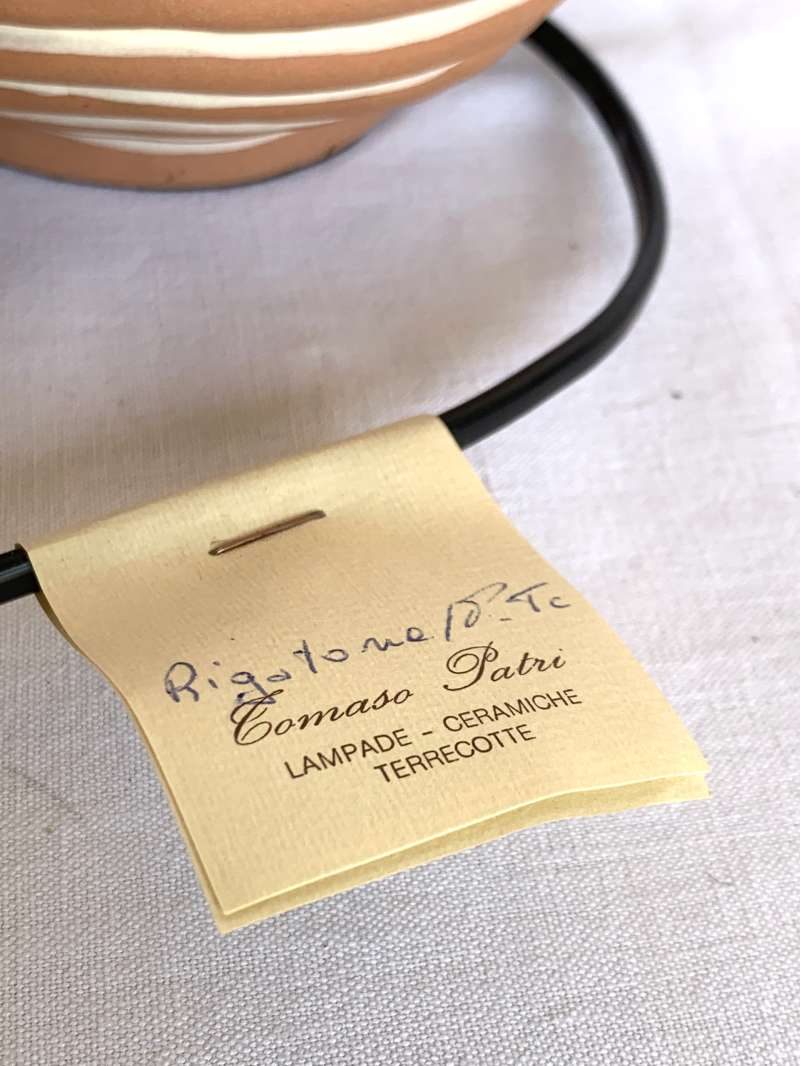 Rigatone
Tomaso Patri
LAMPADE - CERAMICHE
TERRECOTTE